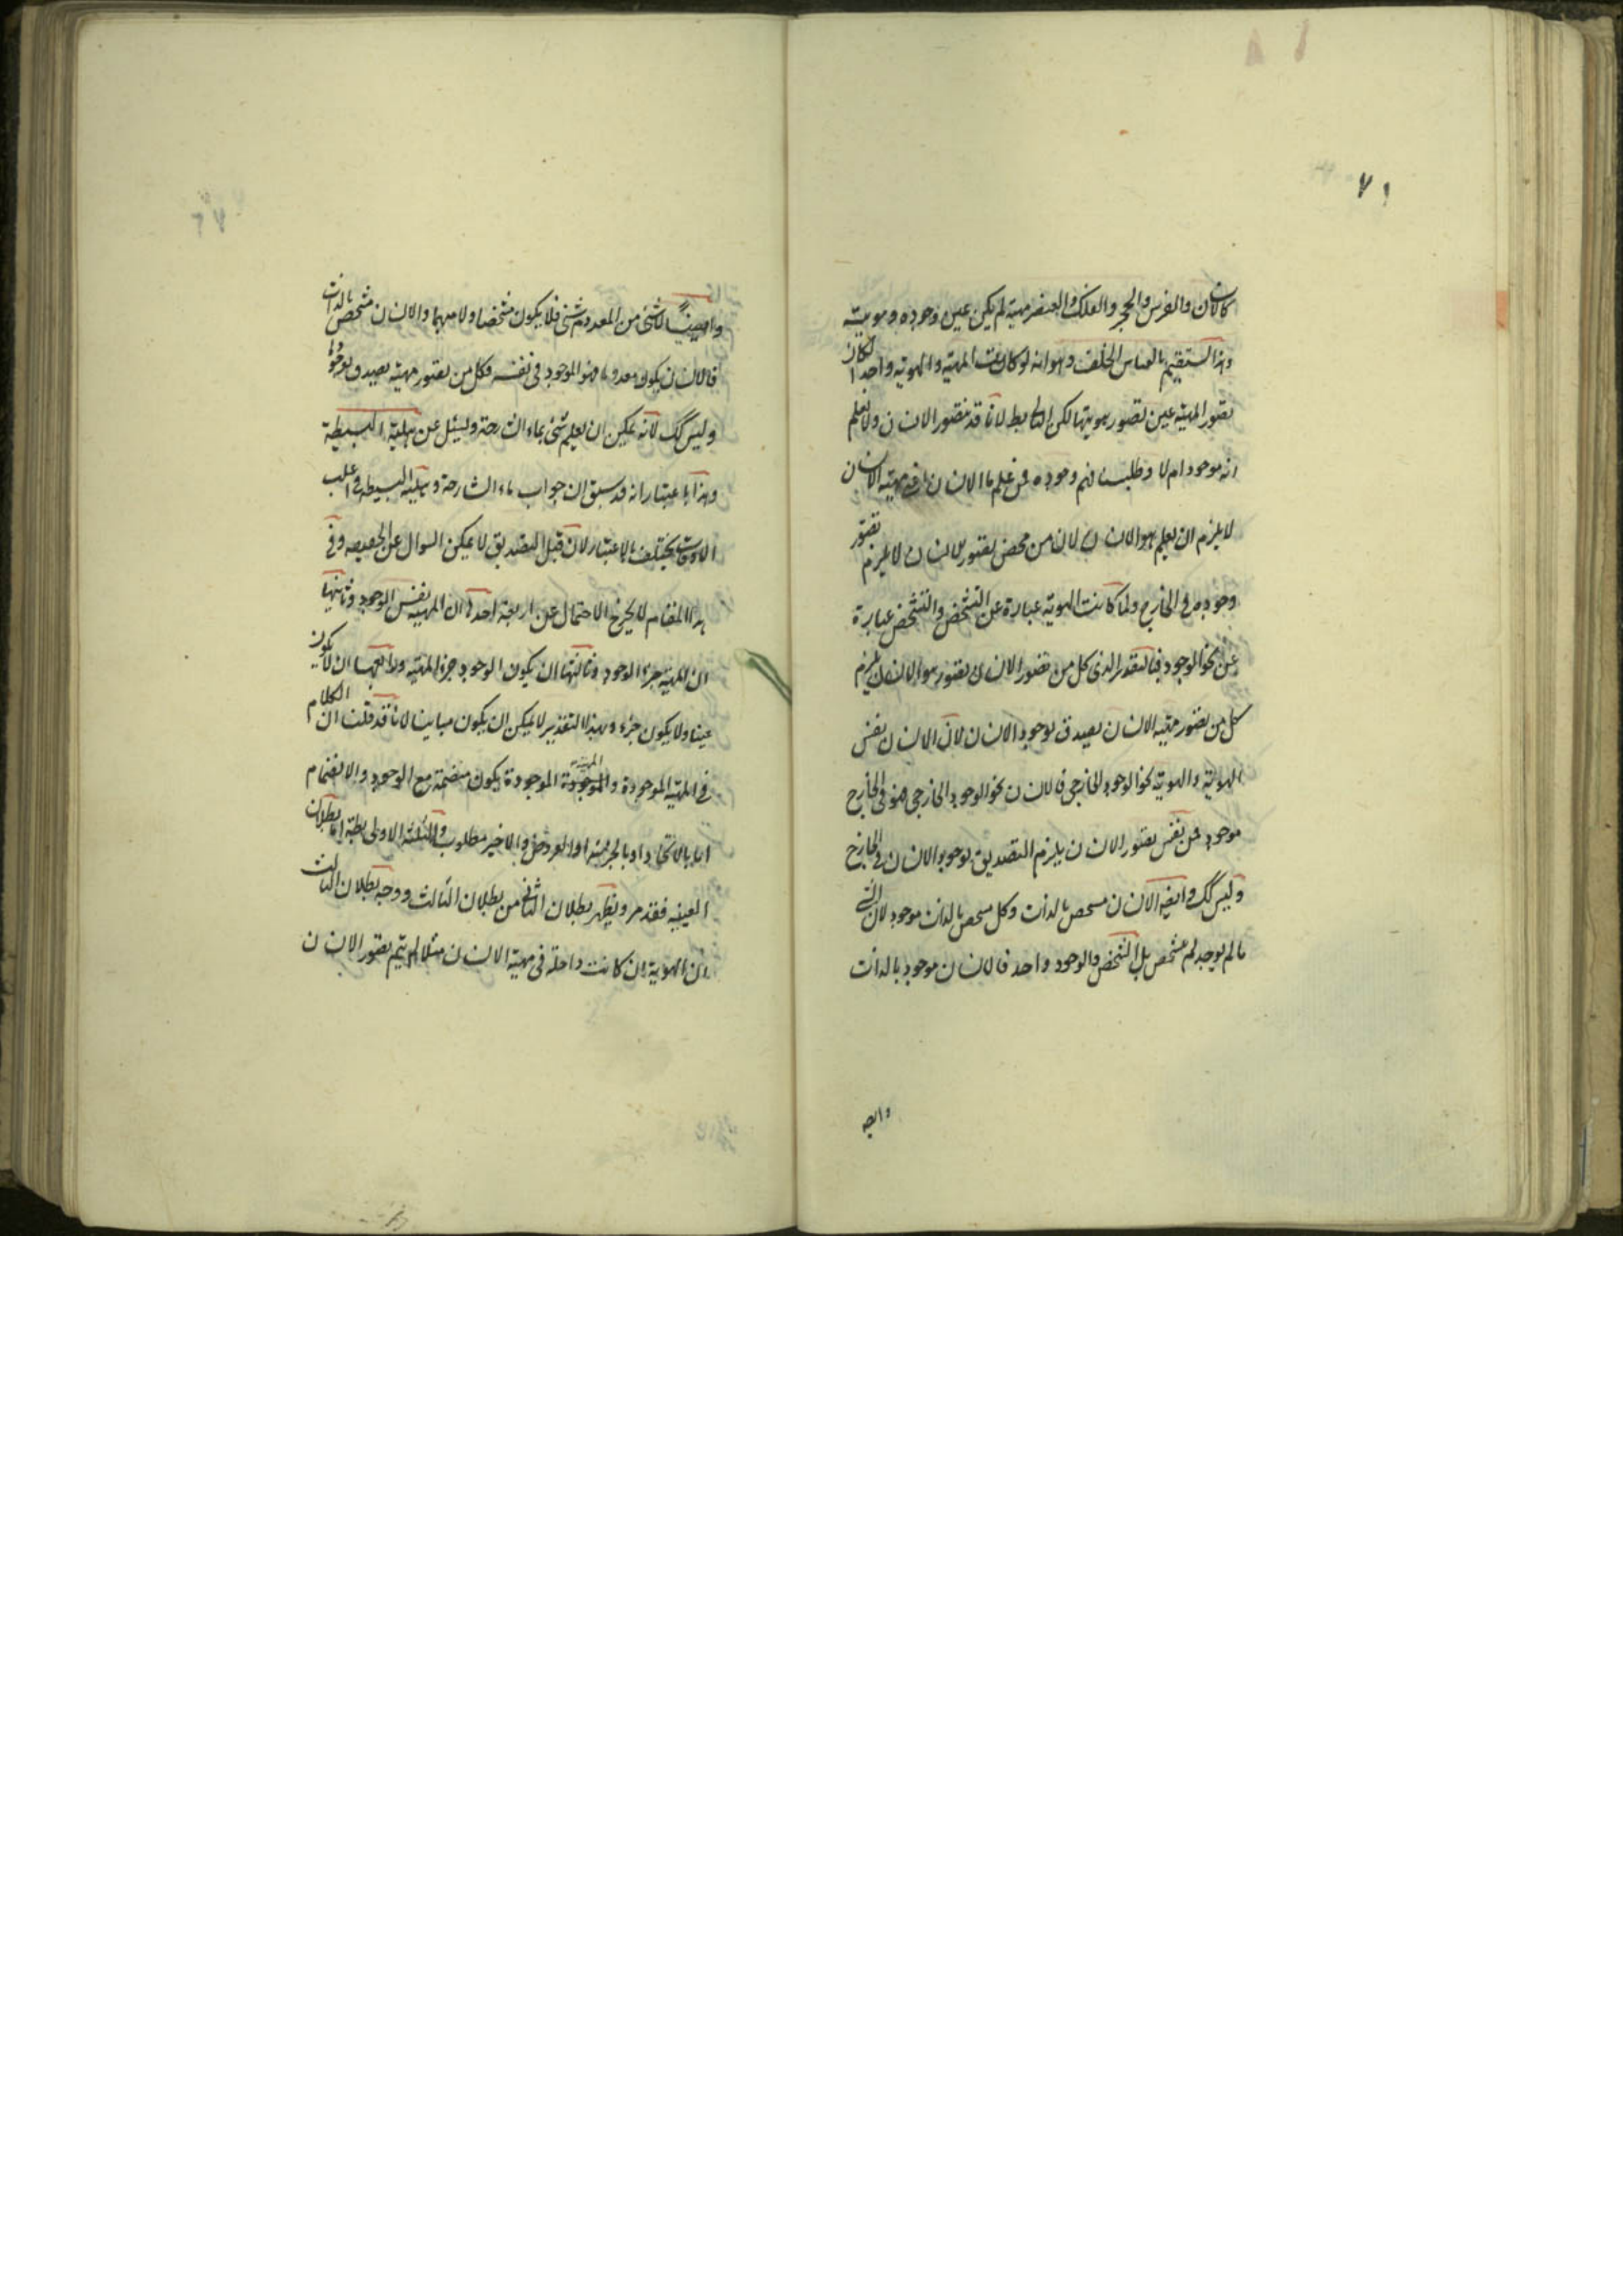 ٧١
كالانسان والفرس والحجر والفلك والعنصر مهية لم يكن عين وجوده وهويته
وهذا يستقيم بالقياس الخلف وهو انه لو كانت المهية والهوية واحدا لكان
تصور المهية عين تصور هويتها لكن التالى بط لانا قد نتصور الانسان ولا نعلم
انه موجود ام لا وجوده فمن علم ما الانسان مهية الانسان
لا يلزم ان يعلم هو الانسان لان من محض تصور الانسان لا يلزم تصور
وجوده فى الخارج ولما كانت الهوية عبارة عن التشخص والتشخص عبارة
عن نحو الوجود كل من تصور الانسان تصور هو الانسان يلزم
كل من تصور مهية الانسان يصدق بوجود الانسان لان الانسان نفس
الهوية والهوية نحو الوجود الخارجى فالانسان نحو الوجود الخارجى فهو فى الخارج
موجود فمن نفس تصور الانسان يلزم التصديق بوجود الانسان فى الخارج
وليس كك وايضه الانسان متشخص بالذات وكل متشخص بالذات موجود لان الشئ
ما لم يوجد لم يتشخص بل التشخص والوجود واحد فالانسان موجود بالذات
وايضه
٧٢
وايضا لا شئ من المعدوم شئ فلا يكون متشخصا ولا مبهما والانسان متشخص بالذات
فالانسان يكون معدوما فهو الموجود فى نفسه فكل من تصور مهيته يصدق بوجودها
وليس كك لانه يمكن ان يعلم شئ بماء الشارحة ويسئل عن هلية البسيطة
وهذا باعتبار انه قد سبق ان جواب ماء الشارحة وهلية البسيطة فى اغلب
الاوقات يختلف بالاعتبار لان قبل التصديق لا يمكن السوال عن الحقيقه وفى
هذا المقام لا يخرج الاحتمال عن اربعة احدها ان المهية نفس الوجود وثانيها
ان المهية جزء الوجود وثالثها ان يكون الوجود جزء المهية ورابعها ان لا يكون
عينا ولا يكون جزء وبهذا التقدير لا يمكن ان يكون مباينا لانا قد قلنا ان الكلام
فى المهية الموجودة والمهية الموجودة يكون منضمة مع الوجود والانضمام
اما بالاتحاد او بالجزئية او العروض والاخير مطلوب والثلثة الاولى بطه اما بطلان
العينيه فقد مر ويظهر بطلان الثانى من بطلان الثالث ووجه بطلان الثالث
ان الهوية ان كانت داخلة فى مهية الانسان مثلا لم يتم تصور الانسان